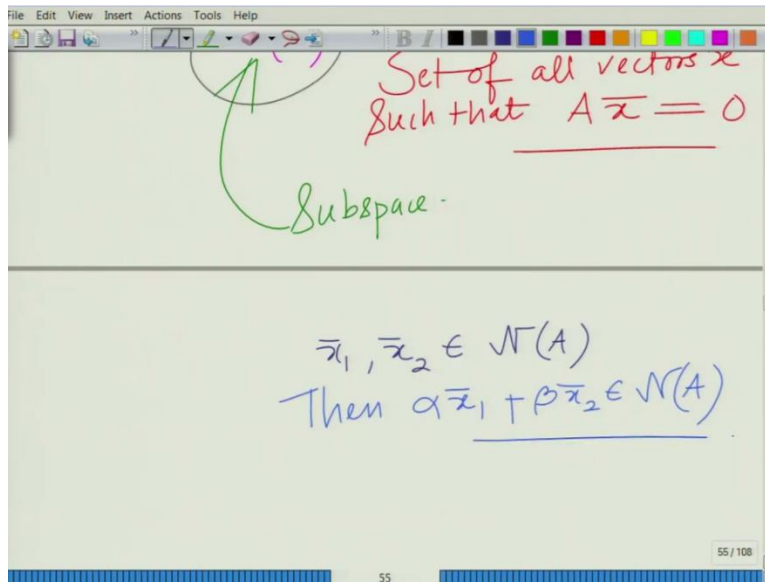 File Edit View Insert Actions Tools Help
B I
Set of all vectors x
Such that A x̄ = 0
Subspace.
x̄₁, x̄₂ ∈ N(A)
Then αx̄₁ + βx̄₂ ∈ N(A)
55 / 108
55